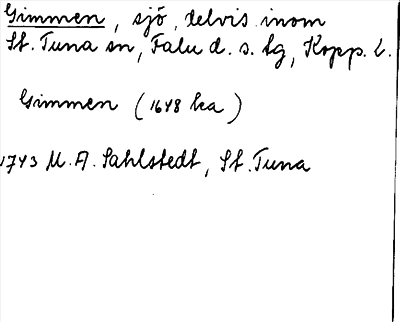 Gimmen, sjö, delvis inom
St. Tuna sn, Falu d. s. tg, Kopp. l.
Gimmen (1648 ka)
1743 M. A. Sahlstedt, St. Tuna